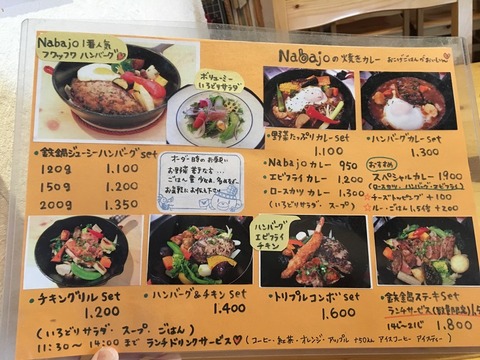 Nabajo 1番人気
フワッフワ ハンバーグ
ボリューミー
いろどりサラダ
・鉄鍋ジューシーハンバーグset
120g 1.100
150g 1.200
200g 1.350
オーダー時のお願い
お野菜 苦手な方…
お気軽にお伝え下さい
Nabajoの焼きカレー
おこげごはんがおいし〜
・野菜たっぷりカレーset
1.100
・ハンバーグカレーset
1.300
・Nabajoカレー 950
・エビフライカレー 1.200
・ロースカツカレー 1.300
(いろどりサラダ・スープ)
おすすめ
スペシャルカレー 1900
(ロースカツ、ハンバーグ、エビフライ)
☆チーズトッピング +100
☆ルー・ごはん 1.5倍 +200
・チキングリルset
1.200
・ハンバーグ&チキンset
1.400
ハンバーグ
エビフライ
チキン
・トリプルコンボset
1.600
・鉄鍋ステーキset
ランチサービス(数量限定)
1.800
(いろどりサラダ・スープ・ごはん)
11:30〜14:00まで ランチドリンクサービス♡
(コーヒー・紅茶・オレンジ・アップル +50
アイスコーヒー・アイスティー)